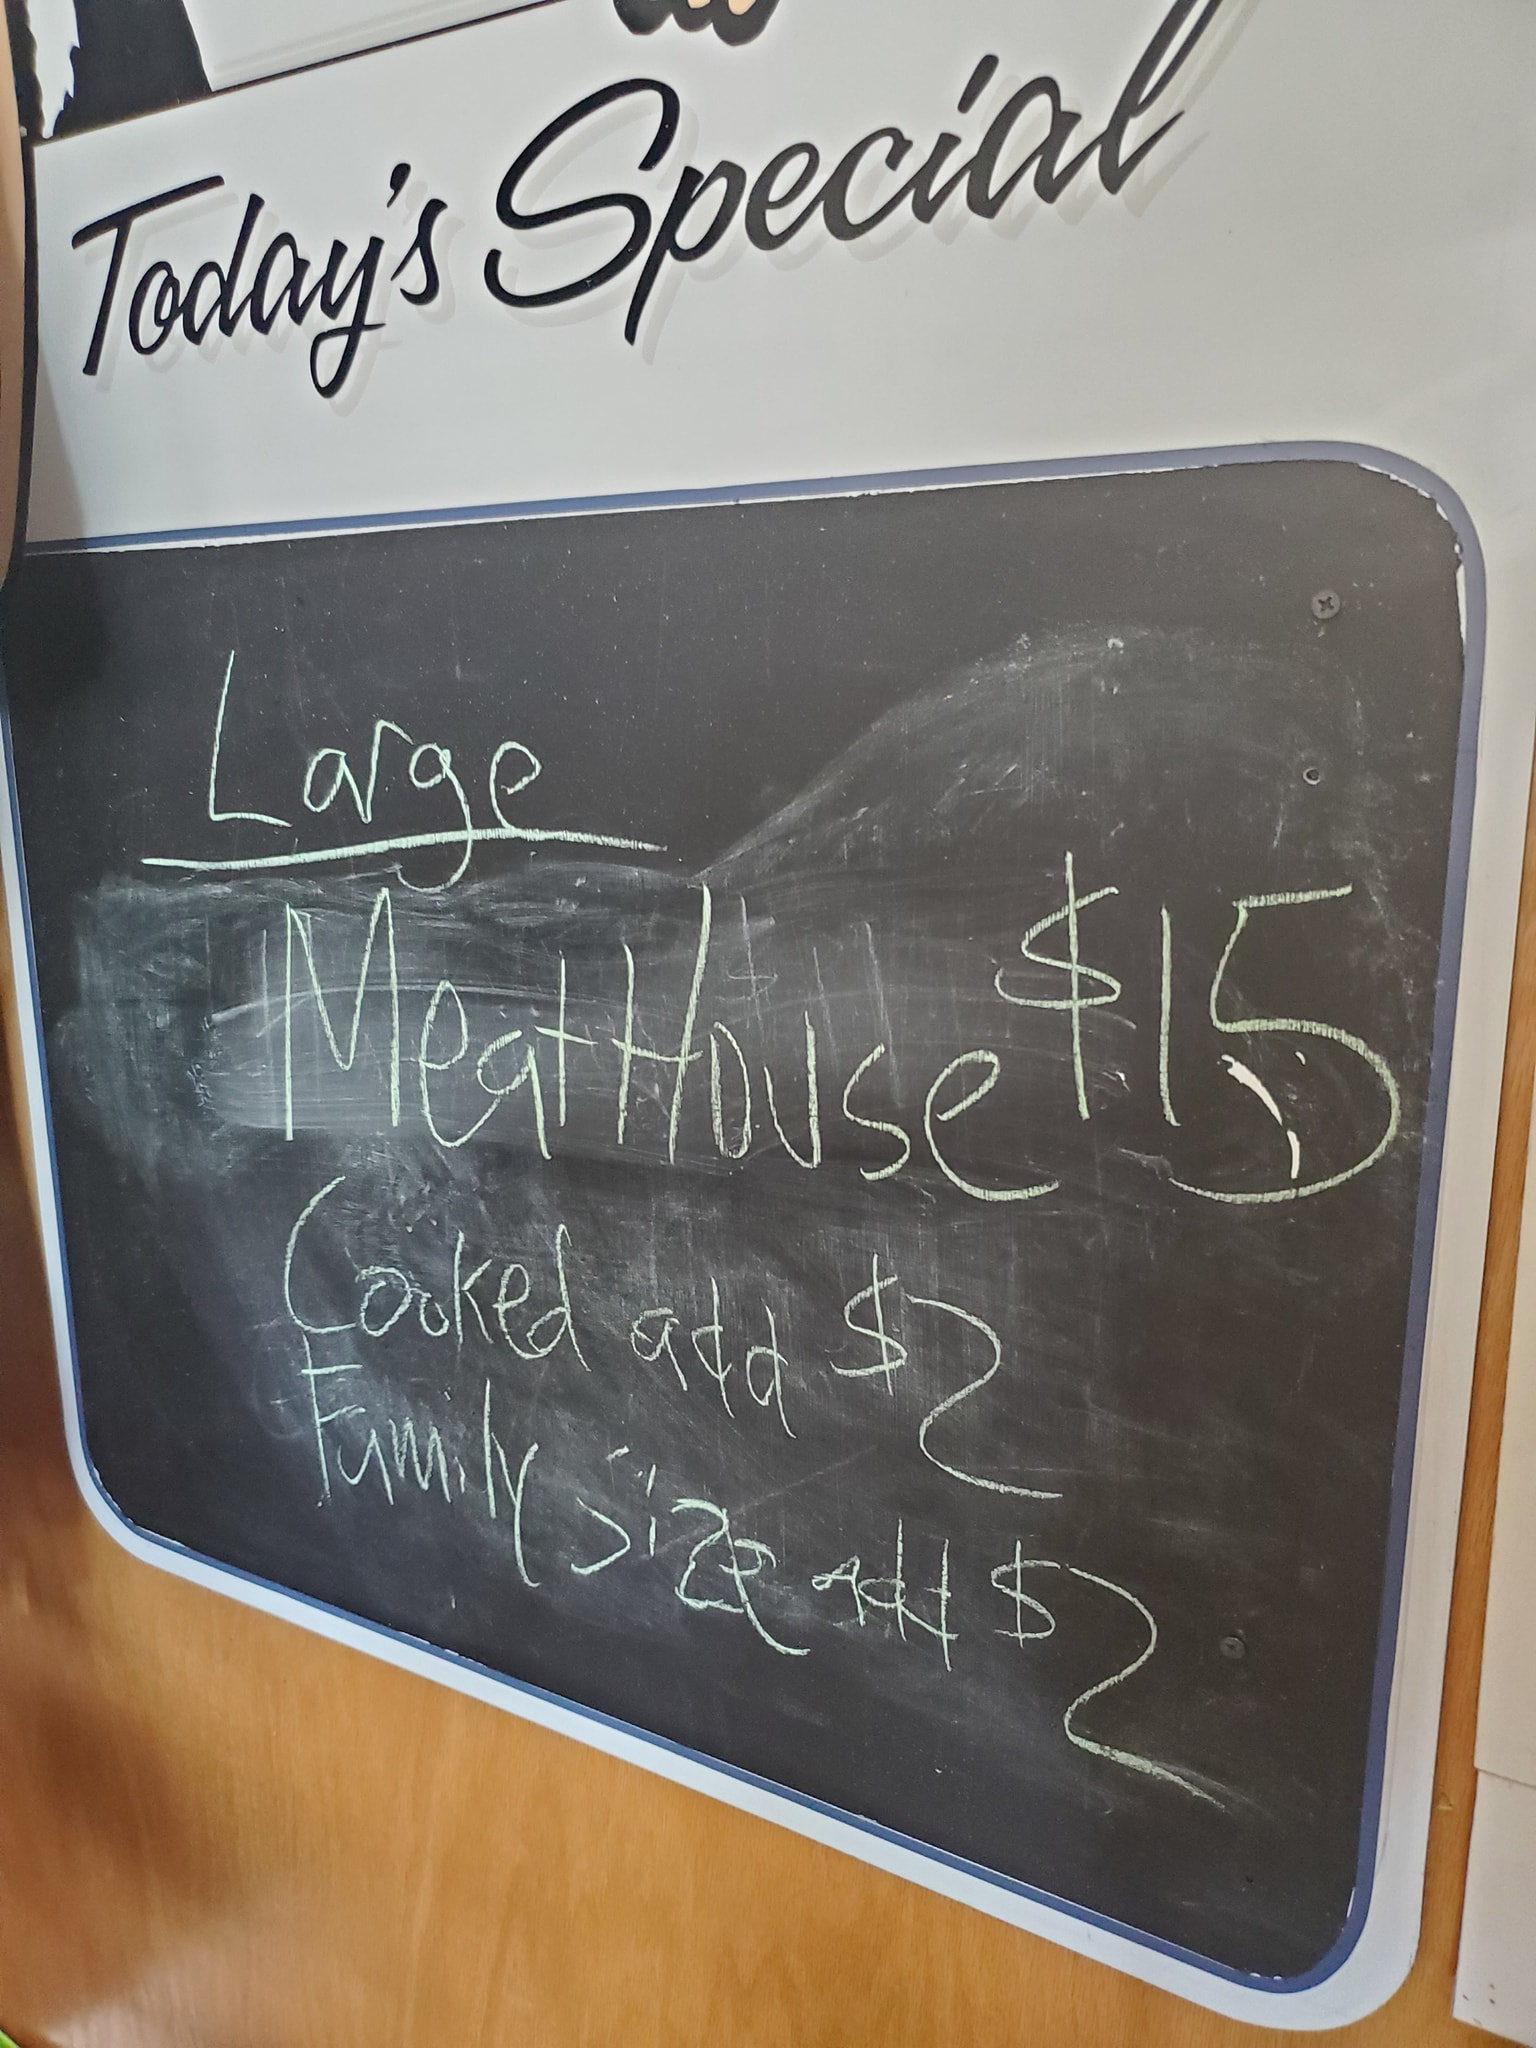 Today's Special
Large
MeatHouse $15
Cooked add $2
Family size add $2